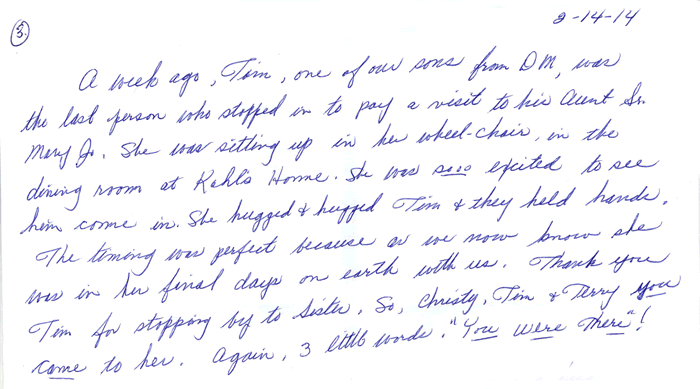 5.
2-14-14
A week ago, Tim, one of our sons from DM, was
the last person who stopped in to pay a visit to his Aunt Sr.
Mary Jo. She was sitting up in her wheel-chair, in the
dining room at Kahl's Home. She was sooo exited to see
him come in. She hugged & hugged Tim & they held hands.
The timing was perfect because as we now know she
was in her final days on earth with us. Thank you
Tim for stopping by to Sister. So, Christy, Tim & Terry you
came to her. Again, 3 little words. "You were there"!